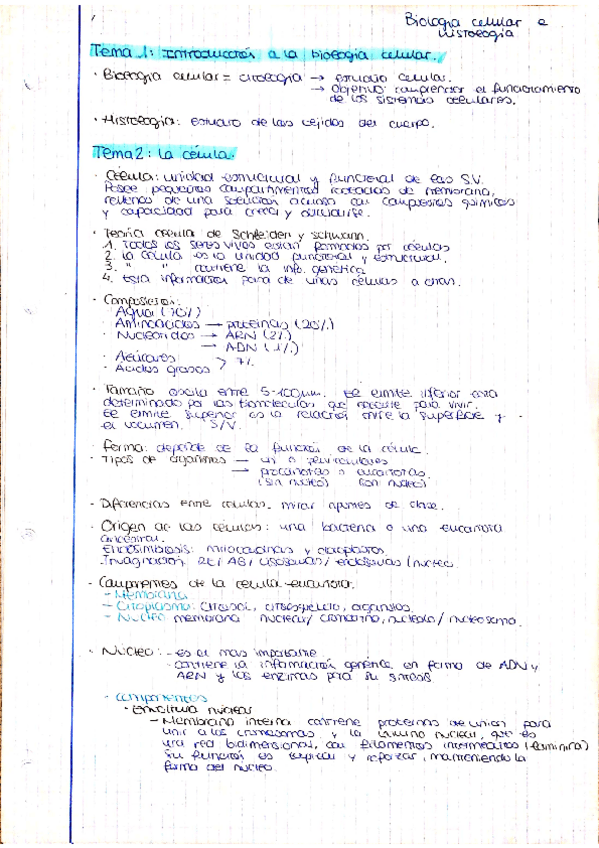 Biología celular e
histología
Tema 1: Introducción a la biología celular.
· Biología celular = citología → estudio celular.
→ objetivo: comprender el funcionamiento
de los sistemas celulares.
· Histología: estudio de los tejidos del cuerpo.
Tema 2: la célula.
· Célula: unidad estructural y funcional de los S.V.
Posee pequeños compartimentos rodeados de membrana,
rellenos de una solución acuosa con compuestos químicos
y capacidad para crecer y dividirse.
· Teoría célula de Schleiden y Schwann.
1. Todos los seres vivos están formados por células
2. la célula es la unidad funcional y estructural.
3. " " contiene la info. genética
4. Esta información pasa de unas células a otras.
· Composición:
Agua (70%)
Aminoácidos → proteínas (20%)
· Nucleótidos → ARN (2%)
→ ADN (1%)
· Azúcares
· Ácidos grasos > 7%
· Tamaño oscila entre 5-100μm. El límite inferior está
determinado por las biomoléculas que necesite para vivir.
El límite superior es la relación entre la superficie y
el volumen. S/V.
· Forma: depende de la función de la célula.
· Tipos de organismos — uni o pluricelulares
→ procariotas o eucariotas.
(sin núcleo) (con núcleo)
· Diferencias entre células. mirar apuntes de clase.
· Origen de las células: una bacteria o una eucariota
ancestral.
Endosimbiosis: mitocondrias y cloroplastos.
Invaginación RE/ AG/ lisosomas/ endosomas/ núcleo.
· Componentes de la célula eucariota.
- Membrana
- Citoplasma: citosol, citoesqueleto, orgánulos.
- Núcleo membrana nuclear/ cromatina, nucleolo/ nucleosoma.
· Núcleo: - es el más importante
- contiene la información genética en forma de ADN y
ARN y los enzimas para su síntesis
- Componentes
· Envoltura nuclear
- Membrana interna contiene proteínas de unión para
unir a los cromosomas, y la lámina nuclear, que es
una red bidimensional, con filamentos intermedios (laminina)
Su función es y reforzar, manteniendo la
forma del núcleo.